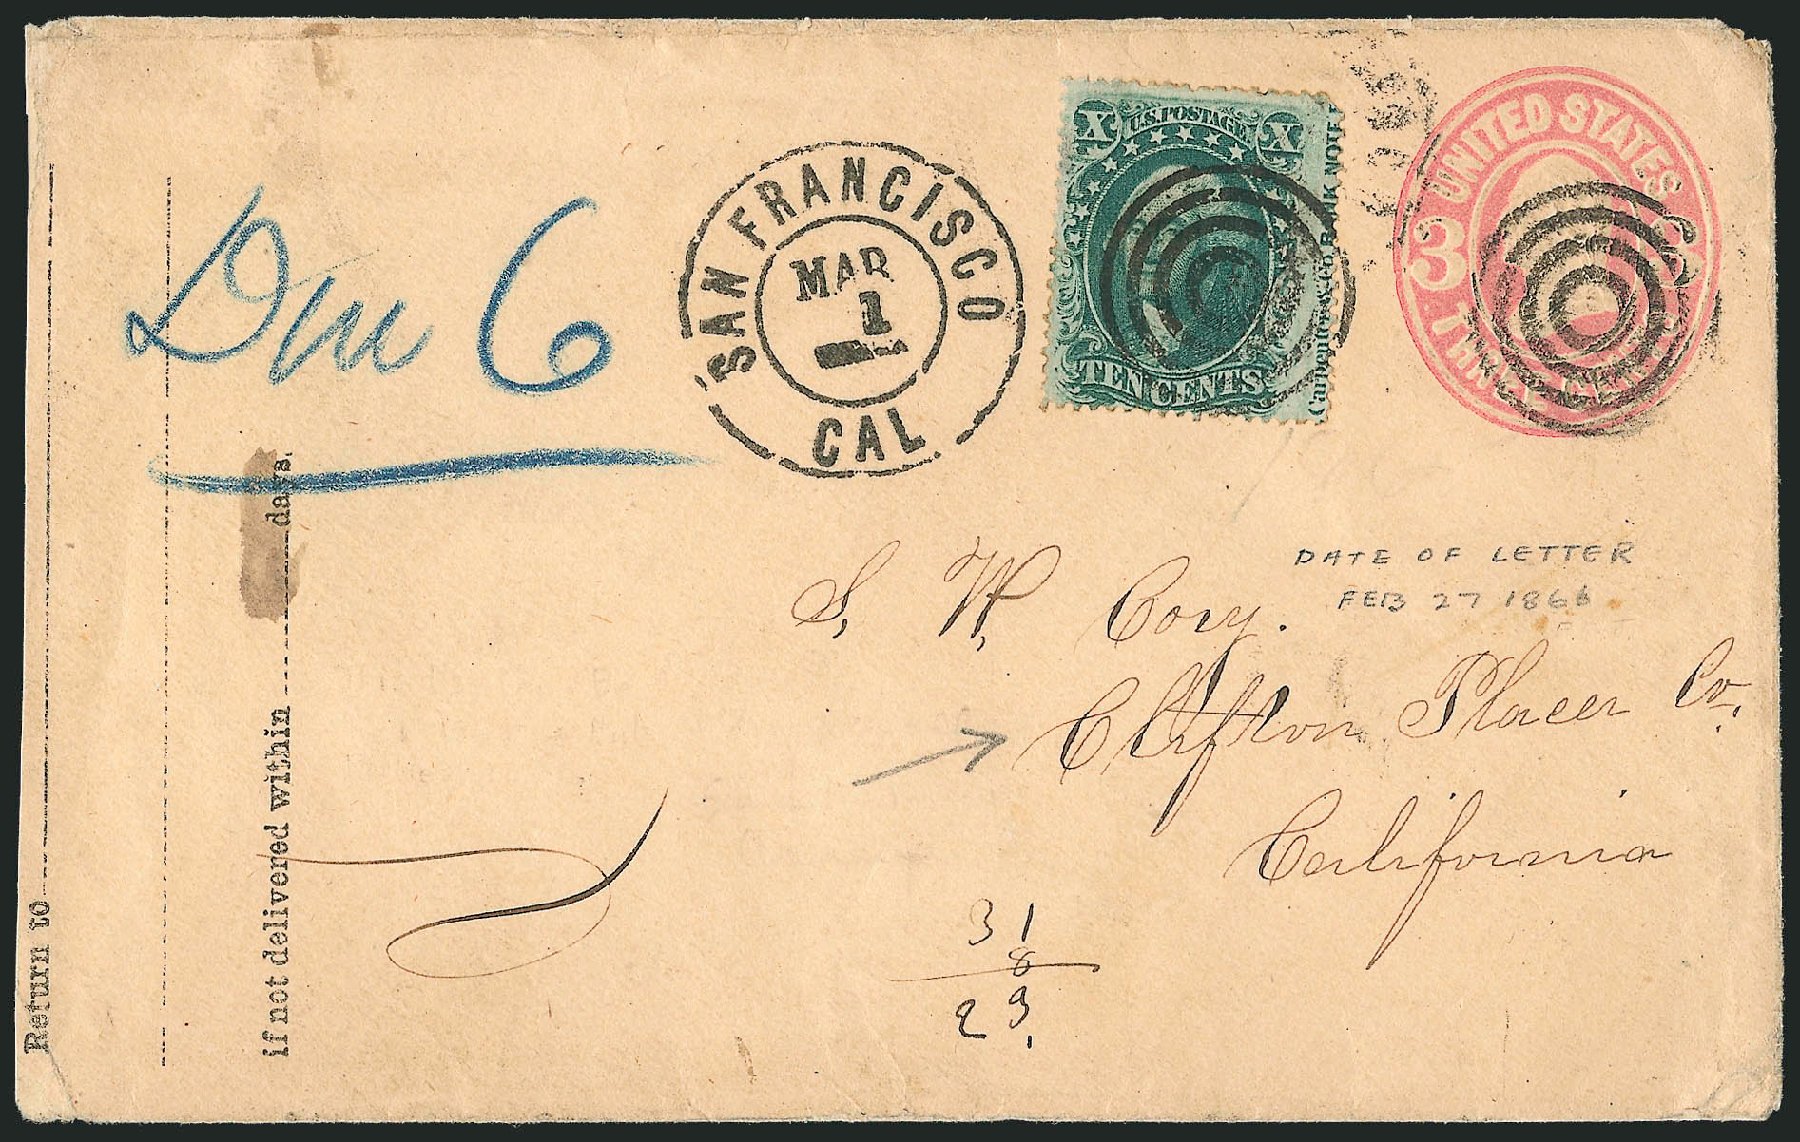 UNITED STATES
3
THREE CENTS
X U.S. POSTAGE X
TEN CENTS
SAN FRANCISCO
MAR
1
CAL
Due 6
DATE OF LETTER
FEB 27 1866
S, W, Cory.
Clifton Placer Co.
California
31
8
23.
Return to
if not delivered within days.